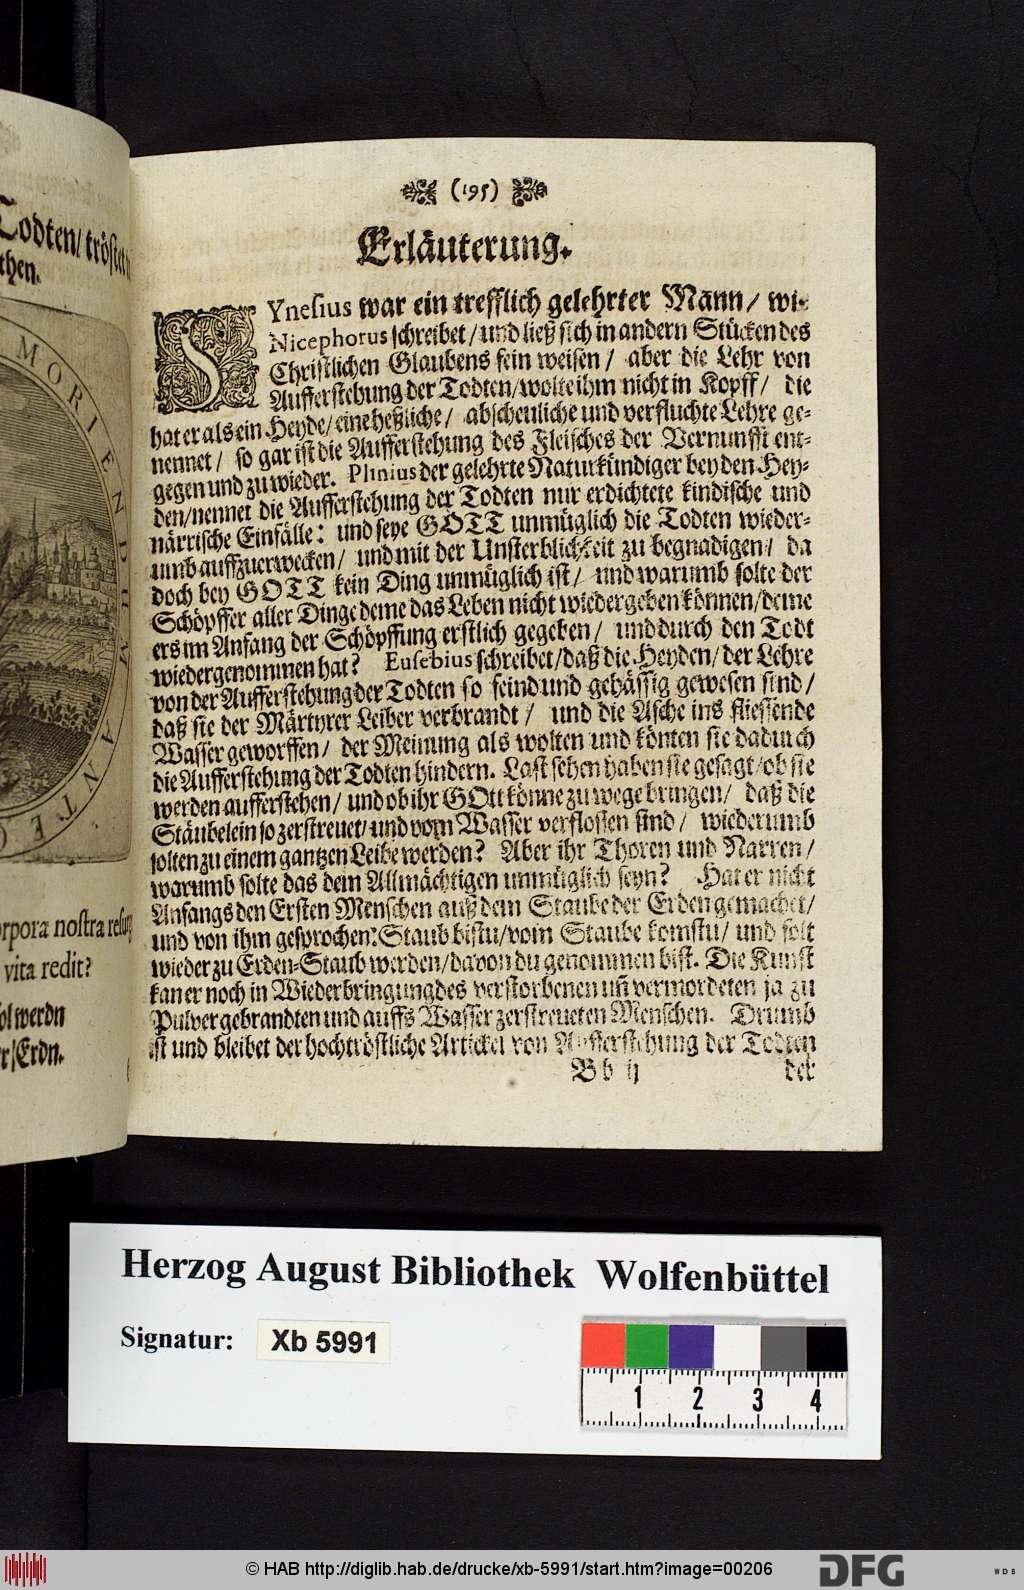 Todten/ tröstet
then.
MORIENDUM ANTE
orpora nostra resurg
vita redit?
ol werdn
r/Erdn.
(195)
Erläuterung.
SYnesius war ein trefflich gelehrter Mann/ wie
Nicephorus schreibet/ und ließ sich in andern Stücken des
Christlichen Glaubens fein weisen/ aber die Lehr von
Aufferstehung der Todten/ wolte ihm nicht in Kopff/ die
hat er als ein Heyde/ eine heßliche/ abscheuliche und verfluchte Lehre ge-
nennet/ so gar ist die Aufferstehung des Fleisches der Vernunfft ent-
gegen und zu wieder. Plinius der gelehrte Naturkündiger bey den Hey-
den/ nennet die Aufferstehung der Todten nur erdichtete kindische und
närrische Einfälle: und seye GOTT unmüglich die Todten wieder-
umb auffzuerwecken/ und mit der Unsterblichkeit zu begnadigen/ da
doch bey GOTT kein Ding unmüglich ist/ und warumb solte der
Schöpffer aller Dinge deme das Leben nicht wiedergeben können/ deme
ers im Anfang der Schöpffung erstlich gegeben/ und durch den Todt
wiedergenommen hat? Eusebius schreibet/ daß die Heyden/ der Lehre
von der Aufferstehung der Todten so feind und gehässig gewesen sind/
daß sie der Märtyrer Leiber verbrandt/ und die Asche ins fliessende
Wasser geworffen/ der Meinung als wolten und könten sie dadurch
die Aufferstehung der Todten hindern. Last sehen haben sie gesagt/ ob sie
werden aufferstehen/ und ob ihr GOtt könne zu wege bringen/ daß die
Stäubelein so zerstreuet/ und vom Wasser verflossen sind/ wiederumb
solten zu einem gantzen Leibe werden? Aber ihr Thoren und Narren/
warumb solte das dem Allmächtigen unmüglich seyn? Hat er nicht
Anfangs den Ersten Menschen auß dem Staube der Erden gemachet/
und von ihm gesprochen: Staub bistu/ vom Staube komstu/ und solt
wieder zu Erden-Staub werden/ davon du genommen bist. Die Kunst
kan er noch in Wiederbringung des verstorbenen uñ vermordeten ja zu
Pulver gebrandten und auffs Wasser zerstreueten Menschen. Drumb
ist und bleibet der hochtröstliche Artickel von Aufferstehung der Todten
Bb ij der
Herzog August Bibliothek Wolfenbüttel
Signatur: Xb 5991
1 2 3 4
© HAB http://diglib.hab.de/drucke/xb-5991/start.htm?image=00206
DFG
WDB